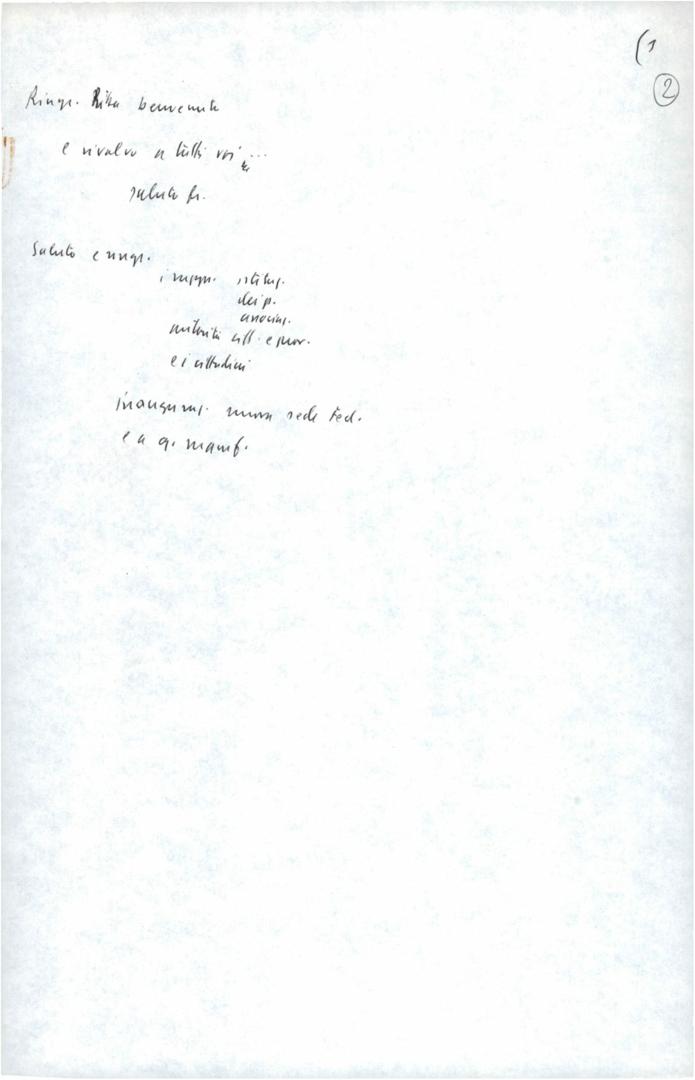 (1
2
Ringr. Rita benvenuta
e rivolvo a tutti voi ...
saluto fr.
Saluto e ringr.
i rappr. istituz.
dei p.
associaz.
autorità citt. e prov.
e i cittadini
inauguraz. nuova sede Fed.
e a q. manif.